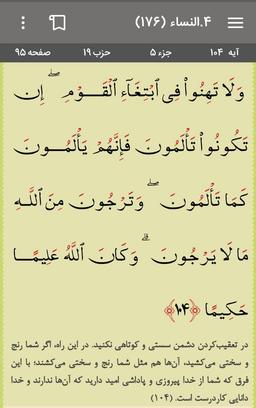 ۴.النساء (۱۷۶)
آیه ۱۰۴ جزء ۵ حزب ۱۹ صفحه ۹۵
وَلَا تَهِنُوا۟ فِى ٱبْتِغَآءِ ٱلْقَوْمِ ۖ إِن
تَكُونُوا۟ تَأْلَمُونَ فَإِنَّهُمْ يَأْلَمُونَ
كَمَا تَأْلَمُونَ ۖ وَتَرْجُونَ مِنَ ٱللَّهِ
مَا لَا يَرْجُونَ ۗ وَكَانَ ٱللَّهُ عَلِيمًا
حَكِيمًا ﴿۱۰۴﴾
در تعقیب‌کردن دشمن سستی و کوتاهی نکنید. در این راه، اگر شما رنج
و سختی می‌کشید، آن‌ها هم مثل شما رنج و سختی می‌کشند؛ با این
فرق که شما از خدا پیروزی و پاداشی امید دارید که آن‌ها ندارند و خدا
دانایی کاردرست است. (۱۰۴)